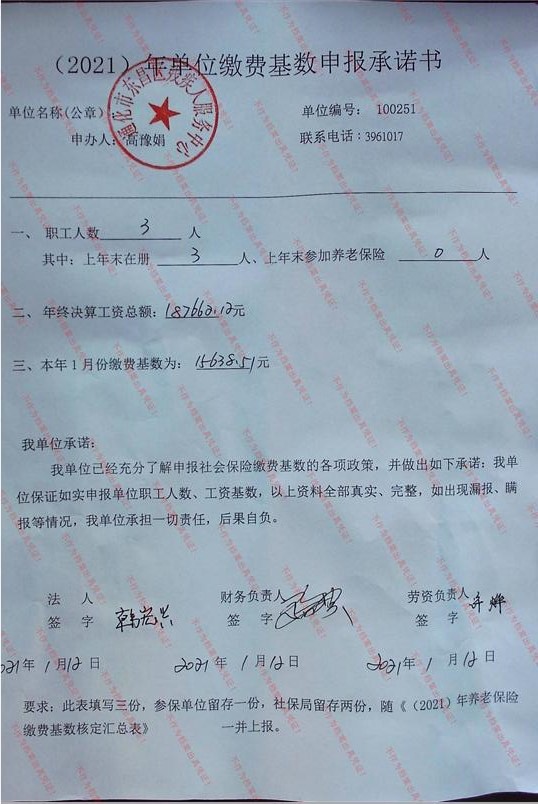 （2021）年单位缴费基数申报承诺书
单位名称(公章)
单位编号： 100251
申办人：高豫娟
联系电话：3961017
通化市东昌区残疾人服务中心
一、 职工人数 3 人
其中：上年末在册 3 人、上年末参加养老保险 0 人
二、 年终决算工资总额：187662.12元
三、本年1月份缴费基数为： 15638.51元
我单位承诺：
我单位已经充分了解申报社会保险缴费基数的各项政策，并做出如下承诺：我单
位保证如实申报单位职工人数、工资基数，以上资料全部真实、完整，如出现漏报、瞒
报等情况，我单位承担一切责任，后果自负。
法 人 财务负责人 劳资负责人
签 字 签 字 签 字
2021年 1月12日 2021年 1月12日 2021年 1月12日
要求：此表填写三份，参保单位留存一份，社保局留存两份，随《（2021）年养老保险
缴费基数核定汇总表》 一并上报。